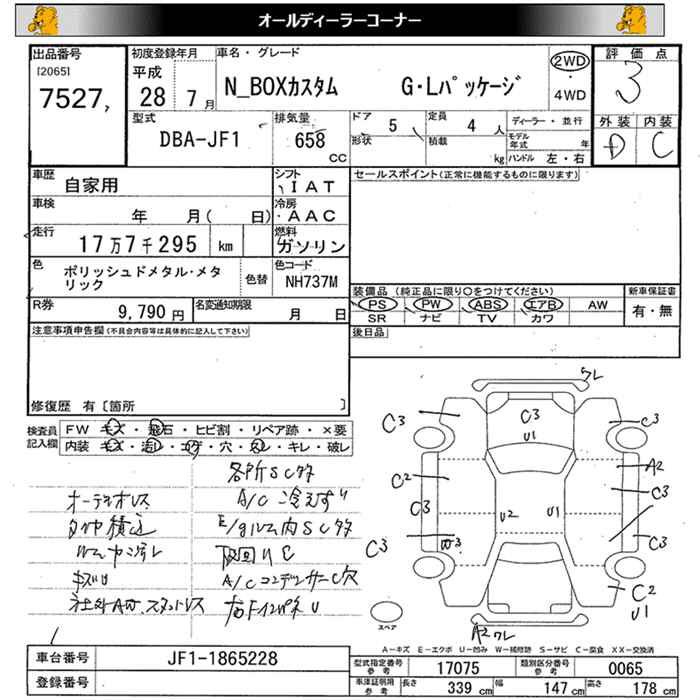 オールディーラーコーナー
出品番号
[2065]
7527,
初度登録年月
平成
28 7 月
車名・グレード
N_BOXカスタム G・Lパッケージ
2WD
・
4WD
評価点
3
外装 内装
D C
型式
DBA-JF1
排気量
658
CC
ドア 5
形状
定員 4 人
積載 kg
ディーラー・並行
モデル年式 年
ハンドル 左・右
車歴
自家用
シフト
IAT
車検
年 月( 日)
冷房
AAC
走行
17万7千295 km
燃料
ガソリン
色
ポリッシュドメタル・メタリック
色替
色コード
NH737M
R券
9,790 円
名変通知期限
月 日
セールスポイント(正常に機能するものに限ります)
装備品 (純正品に限り○をつけてください)
PS PW ABS エアB AW
SR ナビ TV カワ
新車保証書
有・無
後日品
注意事項申告欄(不具合内容等は具体的に記入して下さい)
修復歴 有〔箇所 〕
検査員
記入欄
FW キズ・飛石・ヒビ割・リペア跡・×要
内装 キズ・汚レ・コゲ・穴・スレ・キレ・破レ
各所SC多
オーディオレス
A/C冷えず
タイヤ積込
ルーム内SC多
キズU
A/Cコンデンサー C穴
社外AW.スタッドレス
ワレ
C3
C3
U1
C3
A2
C2
C3
C3
U2
U1
C3
W3
C3
C2
U1
A2 ワレ
スペア
A―キズ E―エクボ U―凹み W―補修跡 S―サビ C―腐食 XX―交換済
車台番号
JF1-1865228
登録番号
型式指定番号
参考
17075
類別区分番号
参考
0065
車津証明用
参考
長さ 339 cm 幅 147 cm 高さ 178 cm